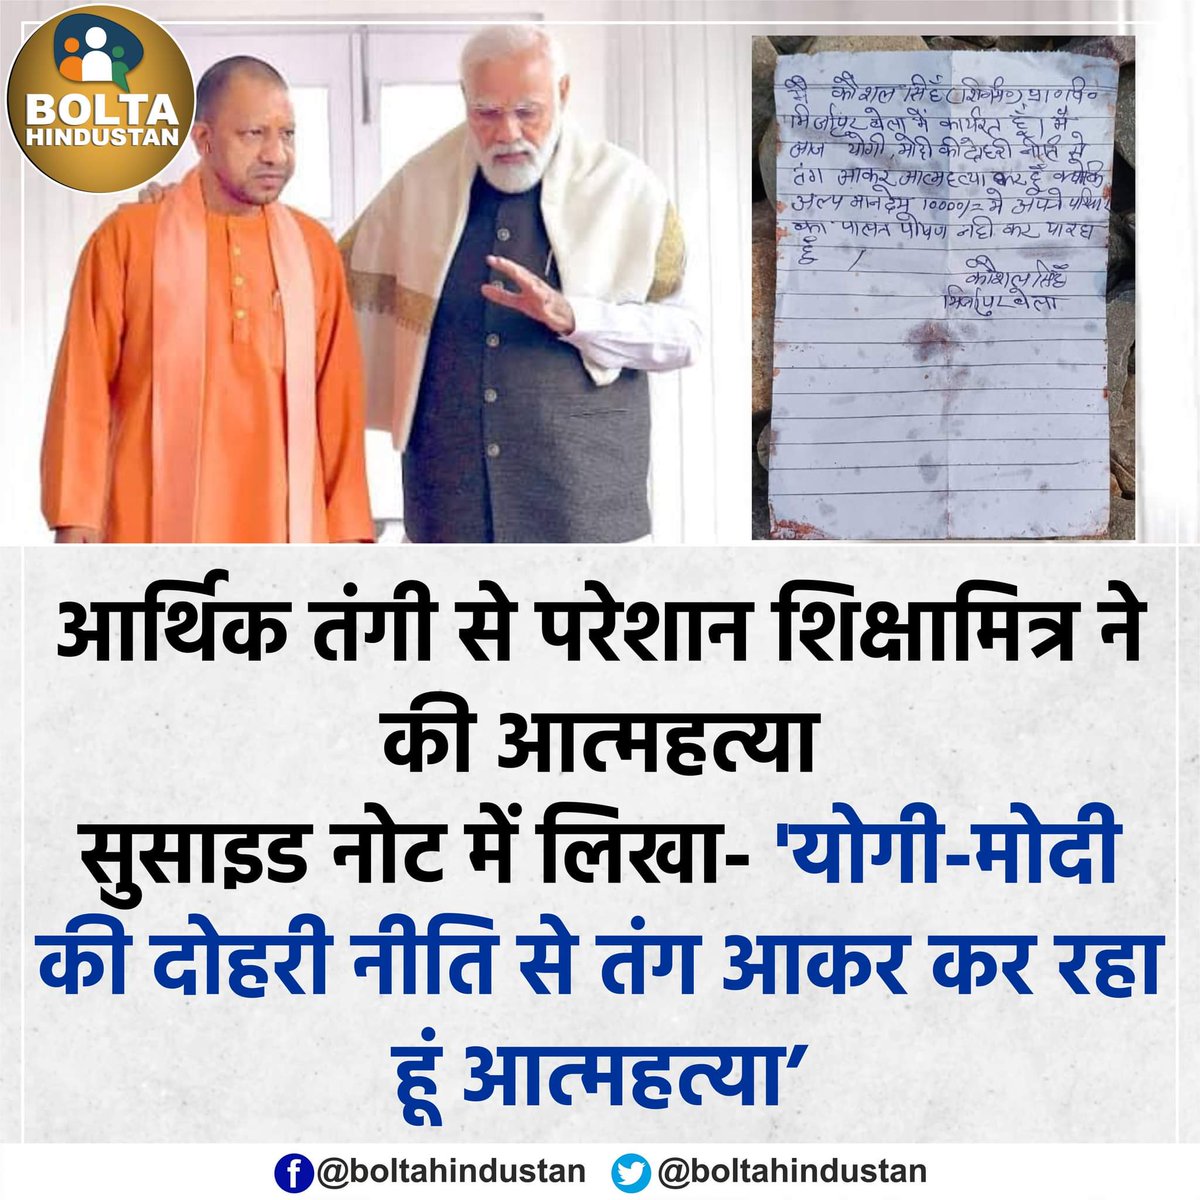 BOLTA
HINDUSTAN
मै कौशल सिंह (शि०मि०) प्रा०वि०
मिर्जापुर बेला में कार्यरत हूं। मैं
आज योगी, मोदी की दोहरी नीति से
तंग आकर आत्महत्या कर हूँ क्योंकि
अल्प मानदेय 10000/= मे अपने परिवार
का पालन पोषण नही कर पा रहा
हूँ ।
कौशल सिंह
मिर्जापुर बेला
आर्थिक तंगी से परेशान शिक्षामित्र ने
की आत्महत्या
सुसाइड नोट में लिखा- 'योगी-मोदी
की दोहरी नीति से तंग आकर कर रहा
हूं आत्महत्या’
@boltahindustan @boltahindustan